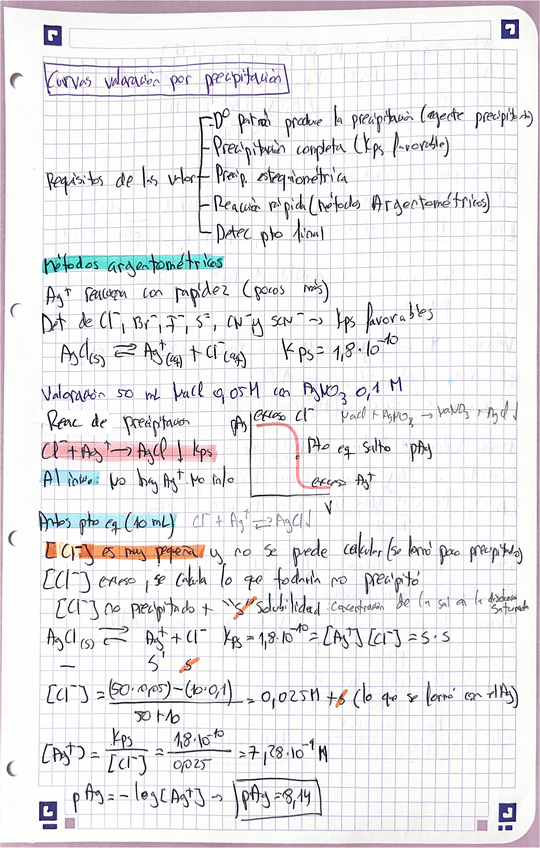 Curvas valoración por precipitación
Dº patrón produce la precipitación (agente precipitante)
Precipitación completa (Kps favorable)
Requisitos de las valor
Precip. estequiométrica
Reacción rápida (Métodos Argentométricos)
Detec pto final
Métodos argentométricos
Ag⁺ reacciona con rapidez (pocos más)
Det de Cl⁻, Br⁻, I⁻, S⁼, CN⁻ y SCN⁻ → Kps favorables
AgCl(s) ⇌ Ag⁺(aq) + Cl⁻(aq) Kps = 1,8·10⁻¹⁰
Valoración 50 mL NaCl 0,05M con AgNO₃ 0,1 M
Reac de precipitación pAg exceso Cl⁻ NaCl + AgNO₃ → NaNO₃ + AgCl↓
Cl⁻ + Ag⁺ → AgCl ↓ Kps Pto eq salto pAg
Al inicio: No hay Ag⁺. No info exceso Ag⁺
V
Antes pto eq (10 mL) Cl⁻ + Ag⁺ ⇌ AgCl↓
[Cl⁻] es muy pequeña y no se puede calcular (se formó poco precipitado)
[Cl⁻] exceso, se calcula lo que todavía no precipitó
[Cl⁻] no precipitado + "s" solubilidad concentración de la sal en la disolución saturada
AgCl(s) ⇌ Ag⁺ + Cl⁻ Kps = 1,8·10⁻¹⁰ = [Ag⁺] [Cl⁻] = s · s
— s⁺ s
[Cl⁻] = (50·0,05) − (10·0,1) / 50+10 = 0,025M + s (lo que se formó con el Ag)
[Ag⁺] = Kps / [Cl⁻] = 1,8·10⁻¹⁰ / 0,025 = 7,28·10⁻⁹ M
pAg = −log[Ag⁺] → pAg = 8,14